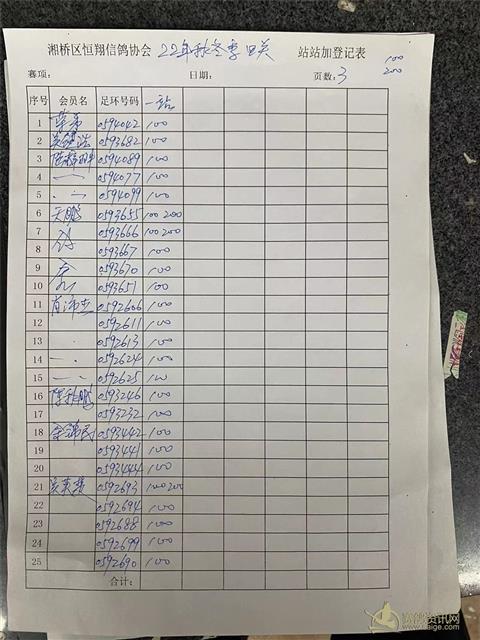 湘桥区恒翔信鸽协会 22年秋冬季四关 站站加登记表 100
赛项： 日期： 页数：3 200
序号 会员名 足环号码 一站
1 0594042 100
2 0593682 100
3 0594089 100
4 0594077 100
5 0594099 100
6 天鹏 0593655 100 200
7 0593666 100 200
8 0593667 100
9 0593670 100
10 0593651 100
11 0592606 100
12 0592611 100
13 0592613 100
14 0592624 100
15 0592625 100
16 0593246 100
17 0593232 100
18 0593442 100
19 0593441 100
20 0593444 100
21 0592693 100 200
22 0592694 100
23 0592688 100
24 0592699 100
25 0592690 100
合计：